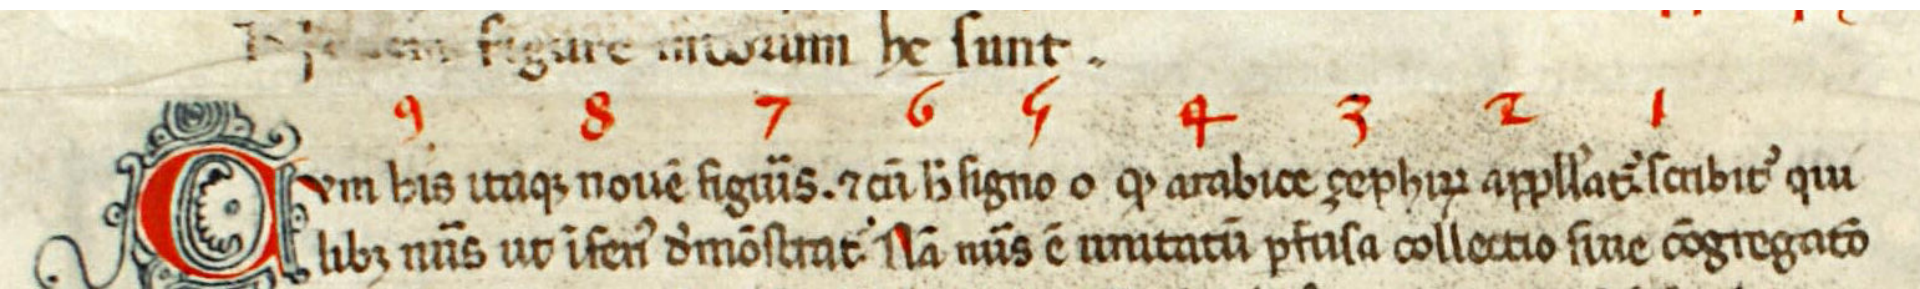 figure indorum he sunt.
9 8 7 6 5 4 3 2 1
Cvm his itaqꝫ nouē figuͥis. ⁊ cū ħ signo o qͩ arabice çephiꝝ appłłat᷑. scribit᷑ qui
libꝫ nūs ut īferiꝰ dͤmōstrat᷑. Nā nūs ē unitatū ꝓfusa collectio siue cōgregatō